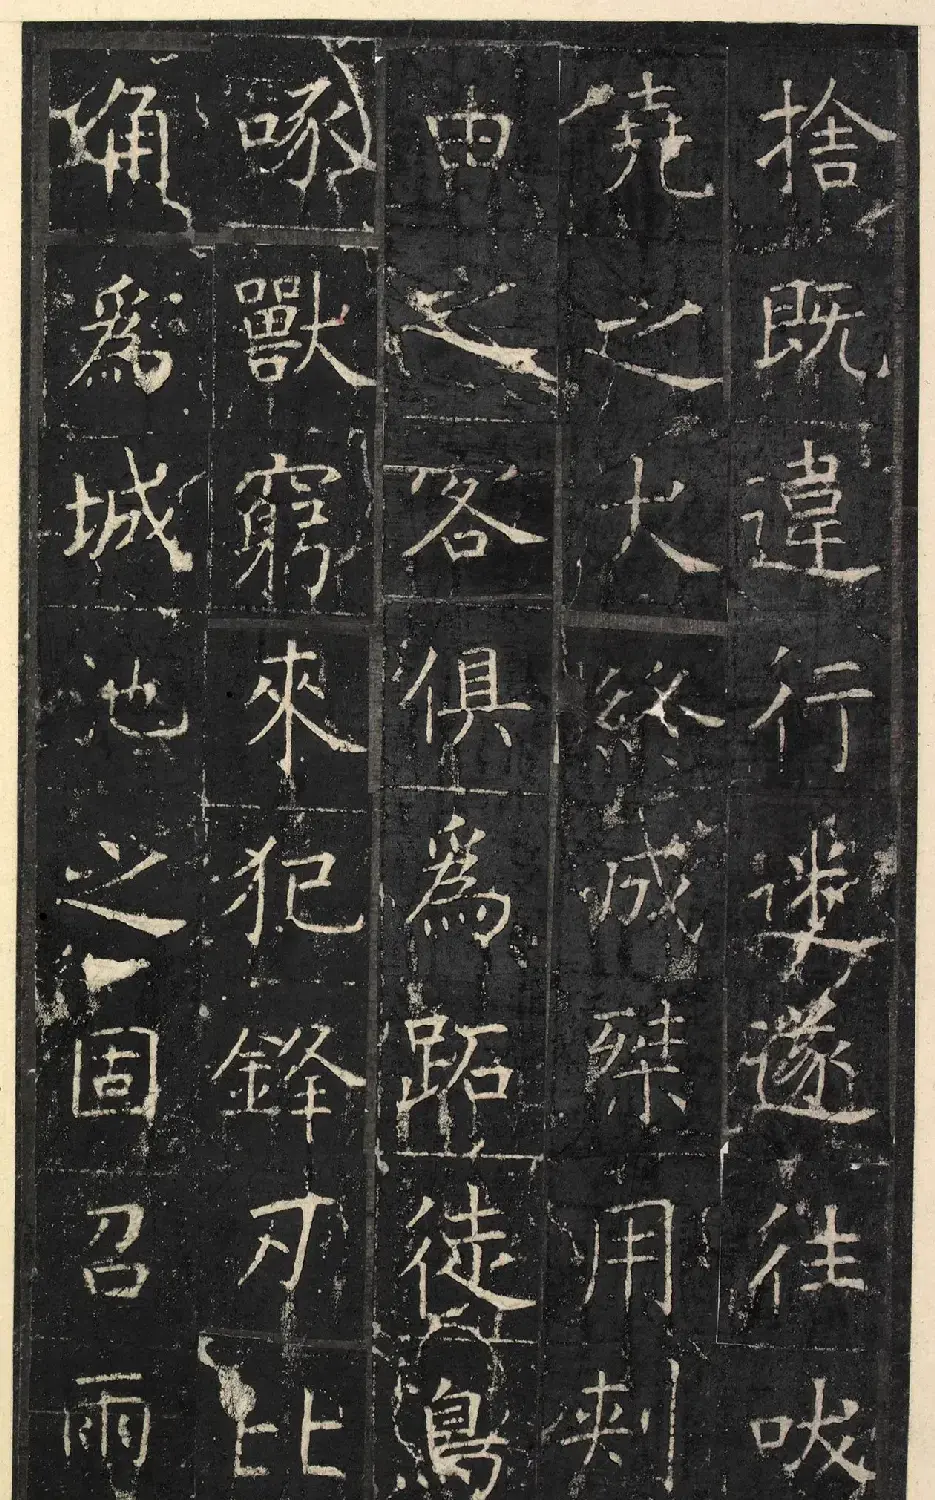 捨既違行迷遂往吠
堯之犬終成桀用刺
由之客俱爲跖徒鳥
啄獸窮來犯鋒刃比
爲城池之固召雨